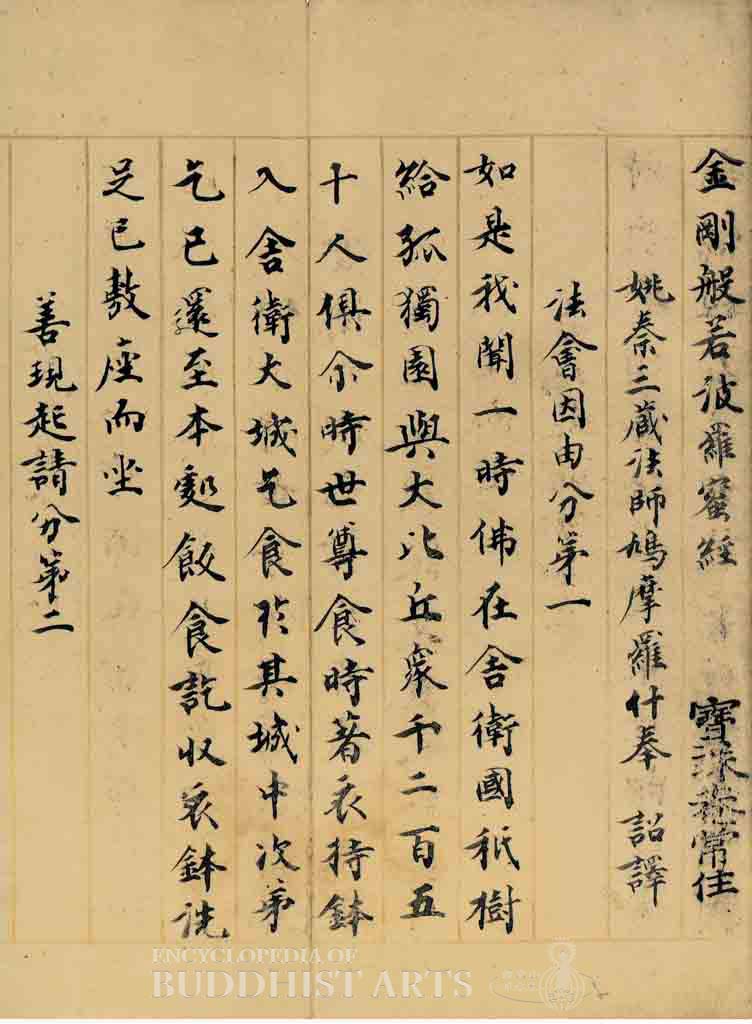 金剛般若波羅蜜經 寶珠菴常住
姚秦三藏法師鳩摩羅什奉 詔譯
法會因由分第一
如是我聞一時佛在舍衛國祇樹
給孤獨園與大比丘衆千二百五
十人俱尒時世尊食時著衣持鉢
入舍衛大城乞食於其城中次第
乞已還至本處飯食訖收衣鉢洗
足已敷座而坐
善現起請分第二
ENCYCLOPEDIA OF
BUDDHIST ARTS